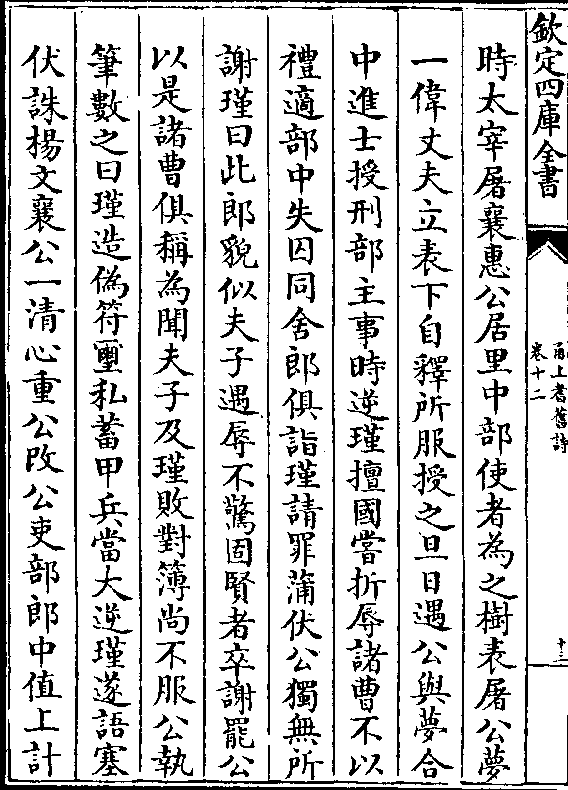 欽定四庫全書
甬上耆舊詩
卷十二
十三
時太宰屠襄惠公居里中部使者為之樹表屠公夢
一偉丈夫立表下自釋所服授之旦日遇公與夢合
中進士授刑部主事時逆瑾擅國嘗折辱諸曹不以
禮適部中失囚同舍郎俱詣瑾請罪蒲伏公獨無所
謝瑾曰此郎貌似夫子遇辱不驚固賢者卒謝罷公
以是諸曹俱稱為聞夫子及瑾敗對簿尚不服公執
筆數之曰瑾造偽符璽私蓄甲兵當大逆瑾遂語塞
伏誅楊文襄公一清心重公改公吏部郎中值上計